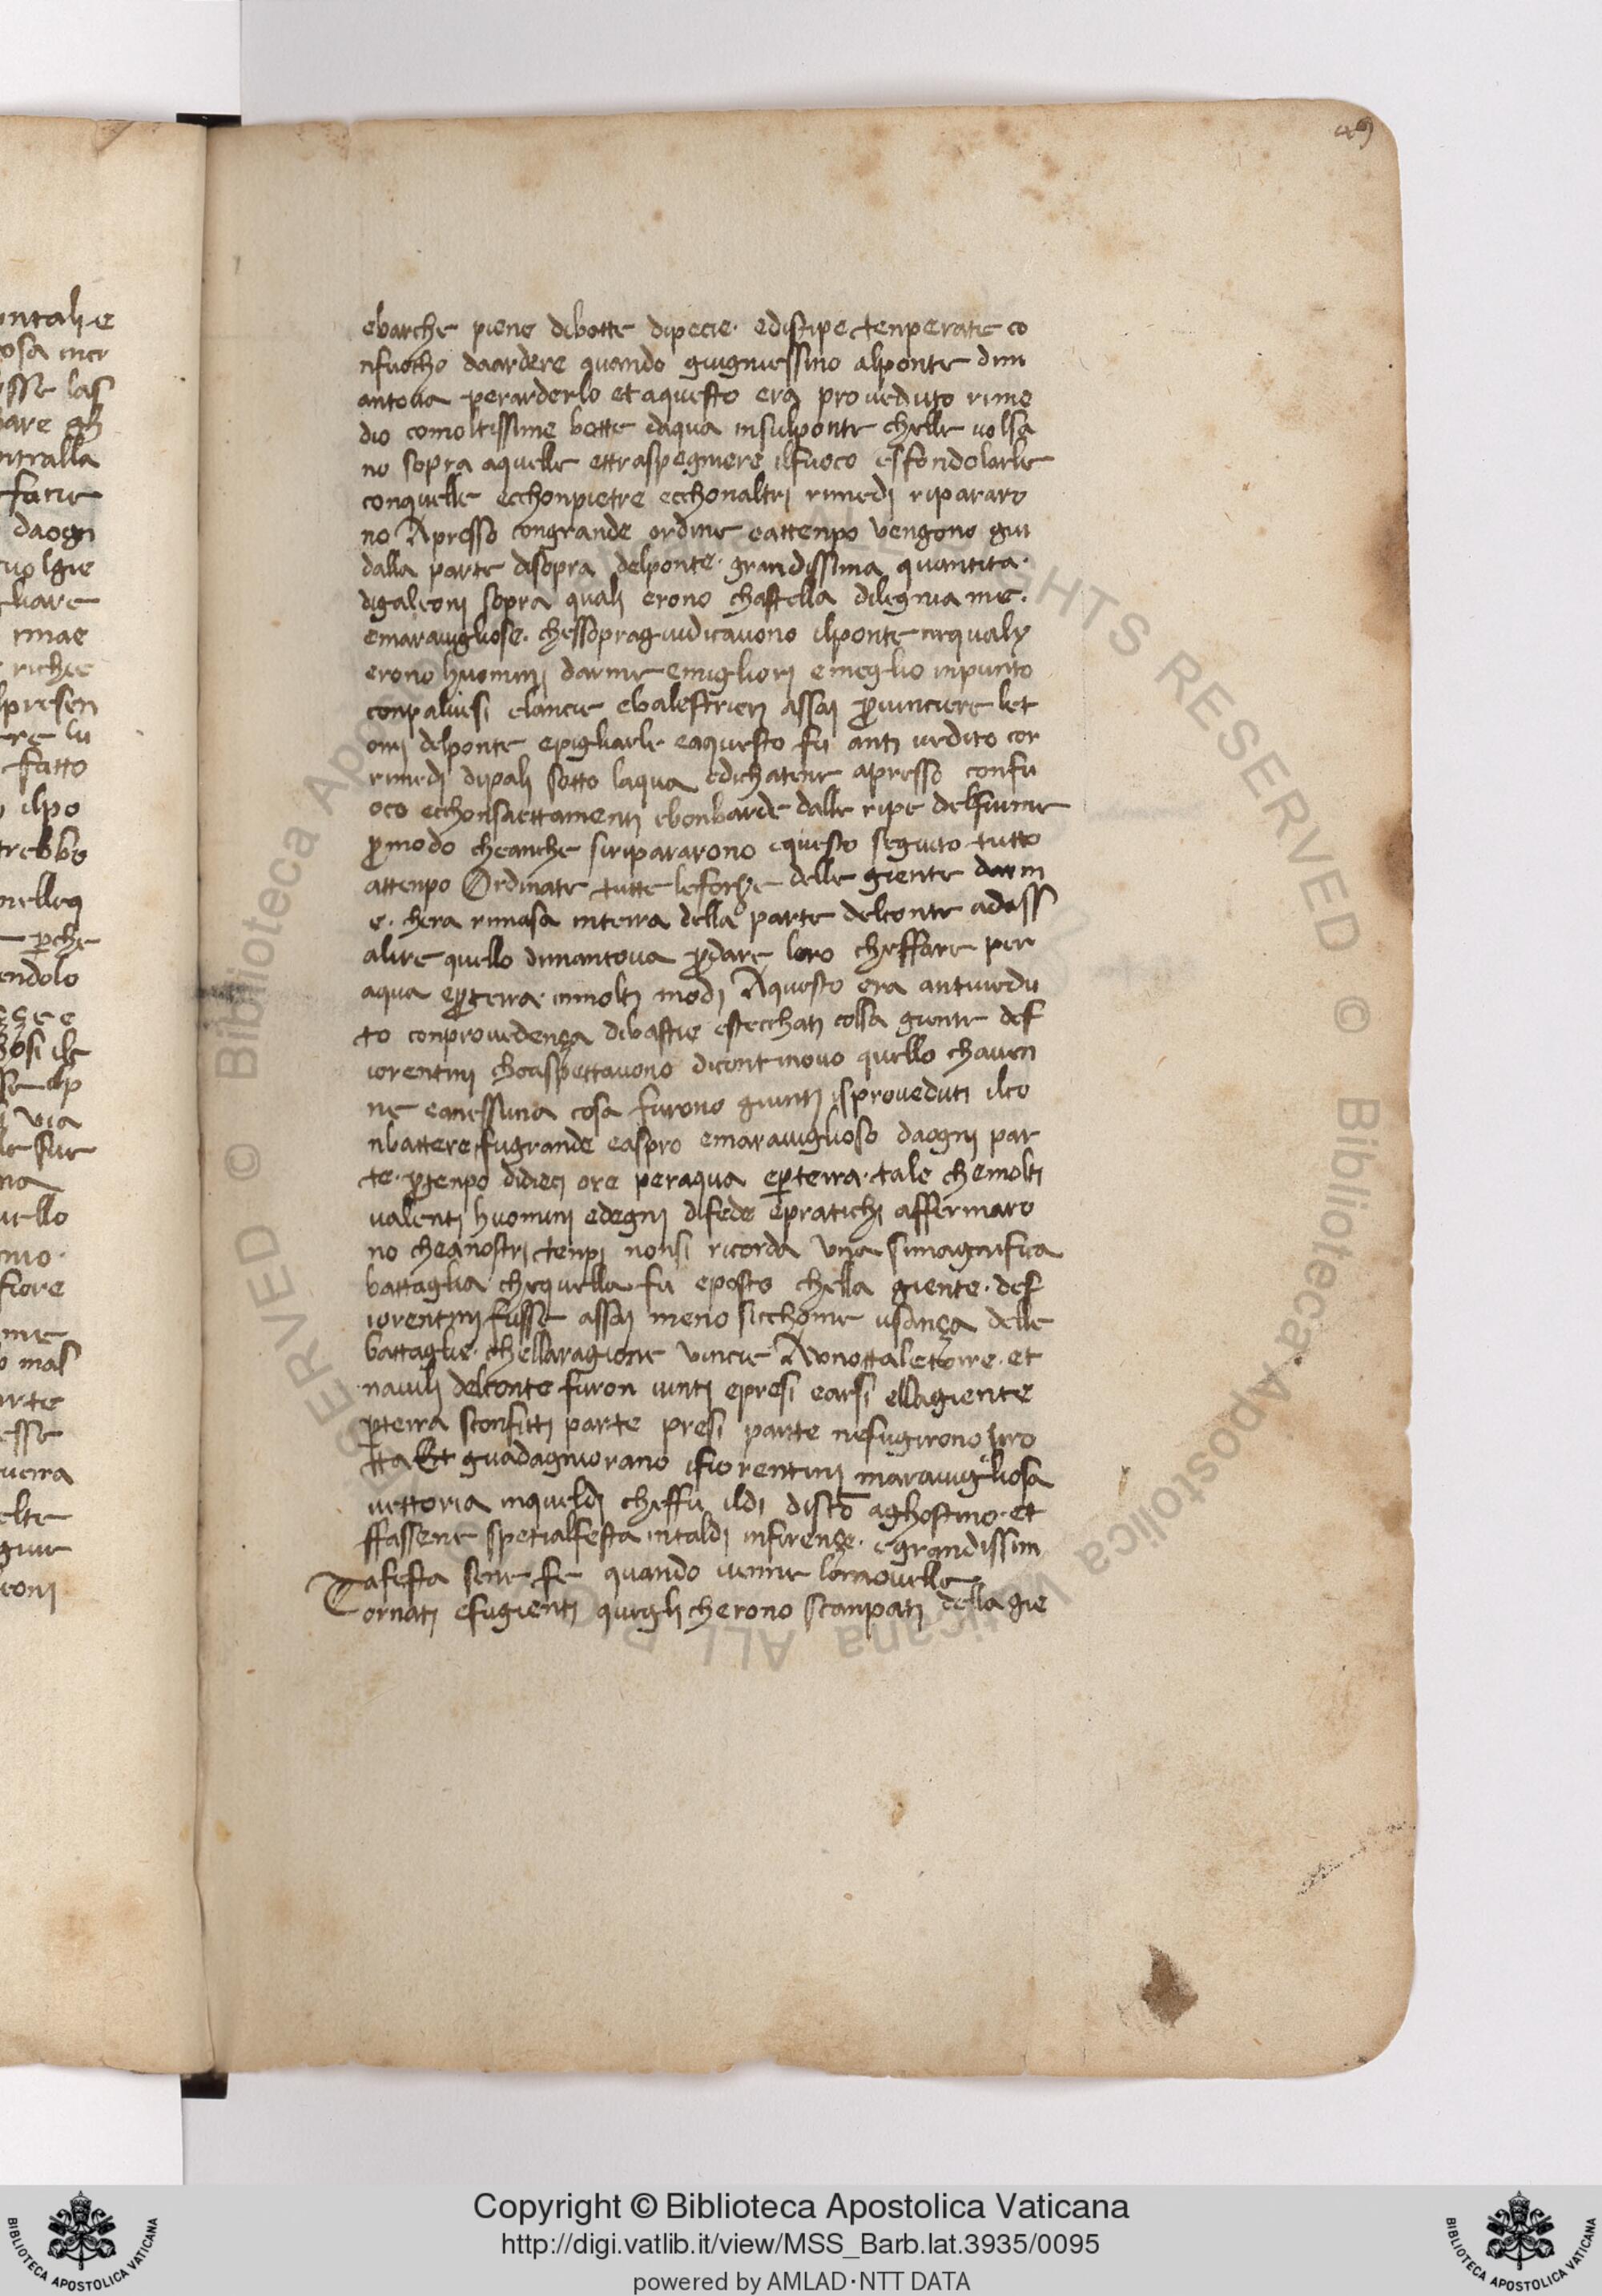 49
ebarche piene dibotte dipecie· edistipe tenperate co
nfuocho daardere quando giugniessino alponte dim
antova perarderlo et aquesto era proveduto rime
dio comoltissime botte daqua insulponte chelle volsa
no sopra aquelle ettraspegniere ilfuoco esfondolarle
conquelle ecchonpietre ecchonaltrj rimedj ripararo
no Apresso congrande ordine eattenpo vengono giu
dalla parte disopra delponte· grandissima quantita·
digaleonj sopra qualj erono chastella dilegniame·
emaravigliose· chessopragiudicavono ilponte neqqualy
erono huominj darme emigliorj emeglio inpunto
conpalvesi elancie ebalestrierj assaj p̱vinciere let
orrj delponte epigliarle eaquesto fu antj vedito cor
rimedj dipalj sotto laqua edichatene apresso confu
oco ecchonsaettamentj ebonbarde dalle ripe delfiume
p̱modo cheanche siripararono equesto seguito tutto
attenpo Ordinate tutte leforze delle giente darm
e· chera rimasa interra della parte delconte adass
alire quello dimantova p̱dare loro cheffare per
aqua ep̱terra· inmoltj modj Aquesto era antivedu
to conprovedença dibastie estecchatj colla giente def
iorentinj choaspettavono dicontinovo quello chaven
ne eanessuna cosa furono giuntj isprovedutj ilco
nbattere fugrande easpro emaraviglioso daognj par
te· p̱tenpo didiecj ore peraqua ep̱terra· tale chemoltj
valentj huominj edegnj difede epratichj affermaro
no cheanostrj tenpj nonsi ricorda una simagnifica
battaglia chequella fu eposto chella giente· def
iorentinj fusse assaj meno sicchome usança delle
battaglie· chellaragione vincie Avnottaletorre· et
navilj delconte furon vintj epresi earsi ellagiente
p̱terra sconfittj parte presi parte nefugirono Irro
tta Et guadagniorano ifiorentinj maravigliosa
vettoria inqueldj cheffu ildj discō aghostino· et
ffassene spetialfesta intaldj infirençe· egrandissim
afesta sene fe quando venne lanovella
Tornatj efugientj queglj cherono scanpatj della gie
ontali e
osa incr
osse las
ntralla
farie
daogn
volgie
richee
lpresen
fatto
ilpo
trebbe
p̱che
endolo
via
fiore
mas
arte
esse
elte
© Biblioteca Apostolica Vaticana ALL RIGHTS RESERVED
Copyright © Biblioteca Apostolica Vaticana
http://digi.vatlib.it/view/MSS_Barb.lat.3935/0095
powered by AMLAD·NTT DATA
BIBLIOTECA APOSTOLICA VATICANA
BIBLIOTECA APOSTOLICA VATICANA